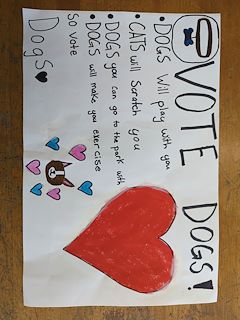 VOTE DOGS!
• DOGS Will play with you
• SATS will Scratch you
• DOGS you can go to the park with
• DOGS will make you exercise
So vote
Dogs